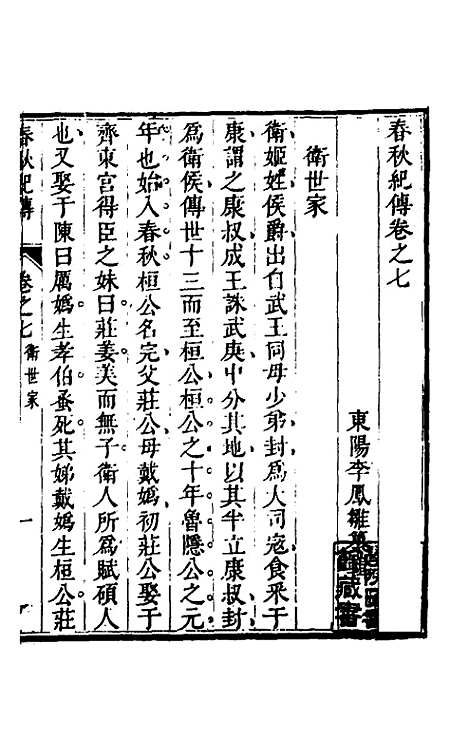 春秋紀傳卷之七
東陽李鳳雛纂
衛世家
衛姬姓侯爵出自武王同母少弟封爲大司寇食采于
康謂之康叔成王誅武庚中分其地以其半立康叔封
爲衛侯傳世十三而至桓公桓公之十年魯隱公之元
年也始入春秋桓公名完父莊公母戴嬀初莊公娶于
齊東宮得臣之妹曰莊姜美而無子衛人所爲賦碩人
也又娶于陳曰厲嬀生孝伯蚤死其娣戴嬀生桓公莊
春秋紀傳 卷之七 衛世家 一
藏書